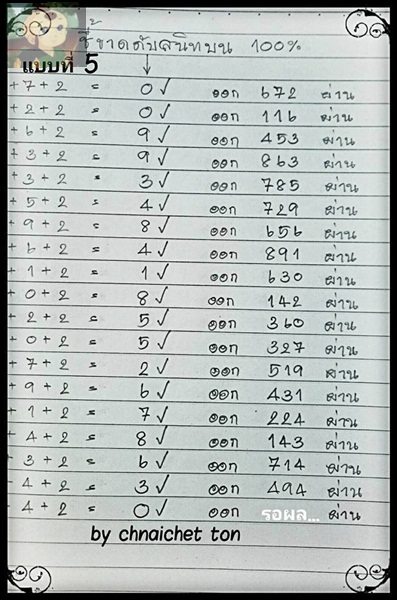 ชี้ขาดดับสนิทบน 100%
แบบที่ 5
+ 7 + 2 = 0 ✓ ออก 672 ผ่าน
+ 2 + 2 = 0 ✓ ออก 116 ผ่าน
+ 6 + 2 = 9 ✓ ออก 453 ผ่าน
+ 3 + 2 = 9 ✓ ออก 863 ผ่าน
+ 3 + 2 = 3 ✓ ออก 785 ผ่าน
+ 5 + 2 = 4 ✓ ออก 729 ผ่าน
+ 9 + 2 = 8 ✓ ออก 656 ผ่าน
+ 6 + 2 = 4 ✓ ออก 891 ผ่าน
+ 1 + 2 = 1 ✓ ออก 630 ผ่าน
+ 0 + 2 = 8 ✓ ออก 142 ผ่าน
+ 2 + 2 = 5 ✓ ออก 360 ผ่าน
+ 0 + 2 = 5 ✓ ออก 327 ผ่าน
+ 7 + 2 = 2 ✓ ออก 519 ผ่าน
+ 9 + 2 = 6 ✓ ออก 431 ผ่าน
+ 1 + 2 = 7 ✓ ออก 224 ผ่าน
+ 4 + 2 = 8 ✓ ออก 143 ผ่าน
+ 3 + 2 = 6 ✓ ออก 714 ผ่าน
+ 4 + 2 = 3 ✓ ออก 494 ผ่าน
+ 4 + 2 = 0 ✓ ออก รอผล... ผ่าน
by chnaichet ton